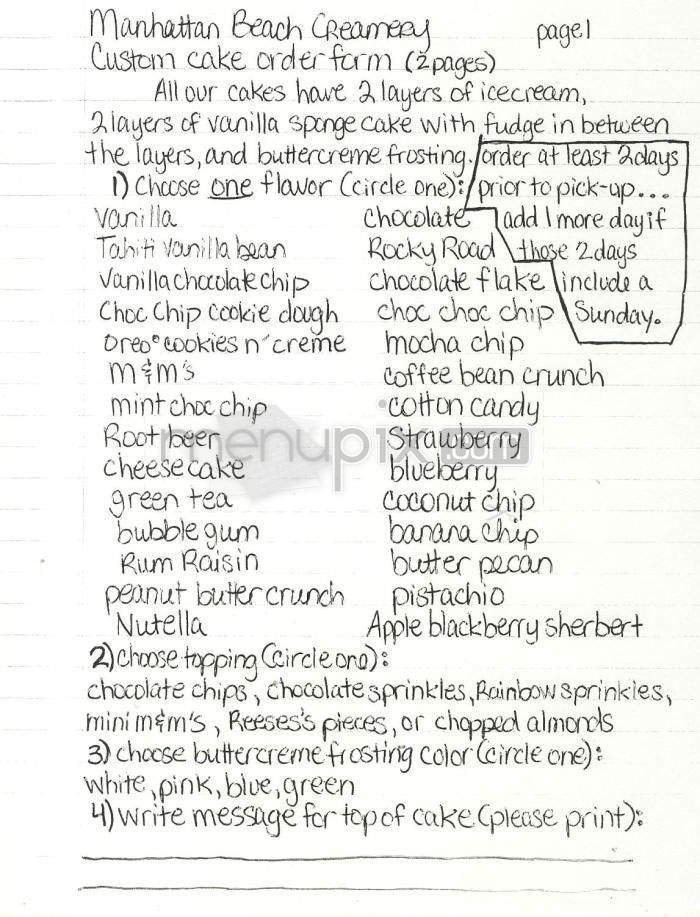 Manhattan Beach Creamery page 1
Custom cake order form (2 pages)
All our cakes have 2 layers of icecream,
2 layers of vanilla sponge cake with fudge in between
the layers, and buttercreme frosting. order at least 2 days
1) Choose one flavor (circle one): prior to pick-up...
vanilla chocolate add 1 more day if
Tahiti vanilla bean Rocky Road those 2 days
vanilla chocolate chip chocolate flake include a
Choc Chip cookie dough choc choc chip Sunday.
oreo cookies n' creme mocha chip
m&m's coffee bean crunch
mint choc chip cotton candy
Root beer strawberry
cheese cake blueberry
green tea coconut chip
bubble gum banana chip
Rum Raisin butter pecan
peanut butter crunch pistachio
Nutella Apple blackberry sherbert
2) choose topping (circle one):
chocolate chips, chocolate sprinkles, Rainbow sprinkles,
mini m&m's, Reeses's pieces, or chopped almonds
3) choose buttercreme frosting color (circle one):
white, pink, blue, green
4) write message for top of cake (please print):
menupix.com